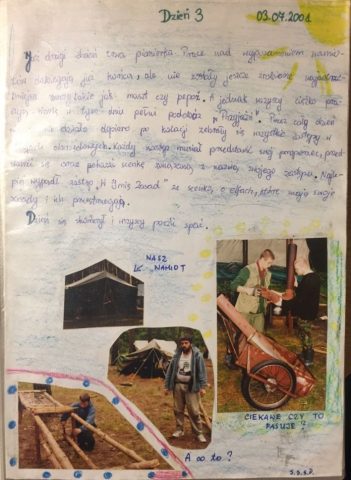 Dzień 3 03.07.2001
Już drugi dzień trwa pionierka. Prace nad wyposażeniem namio-
tów dobiegają już końca, ale nie zostały jeszcze zrobione najpotrze-
bniejsze rzeczy takie jak maszt czy
jednak wszyscy ciężko pra-
cują. Wartę w tym dniu pełni podobóz "Przyjaźń". Przez cały dzień
nic się nie działo dopiero po kolacji zebrały się wszystkie zastępy w
Każdy zastęp musiał przedstawić swój proporzec, przed-
stawić się oraz pokazać scenkę związaną z nazwą swojego zastępu. Najle-
piej wypadł zastęp "H 3miç Zasad" ze scenką o elfach, które mają swoje
zasady i ich przestrzegają.
Dzień się skończył i wszyscy poszli spać.
NASZ
NAMIOT
CIEKAWE CZY TO
PASUJE?
A co to?